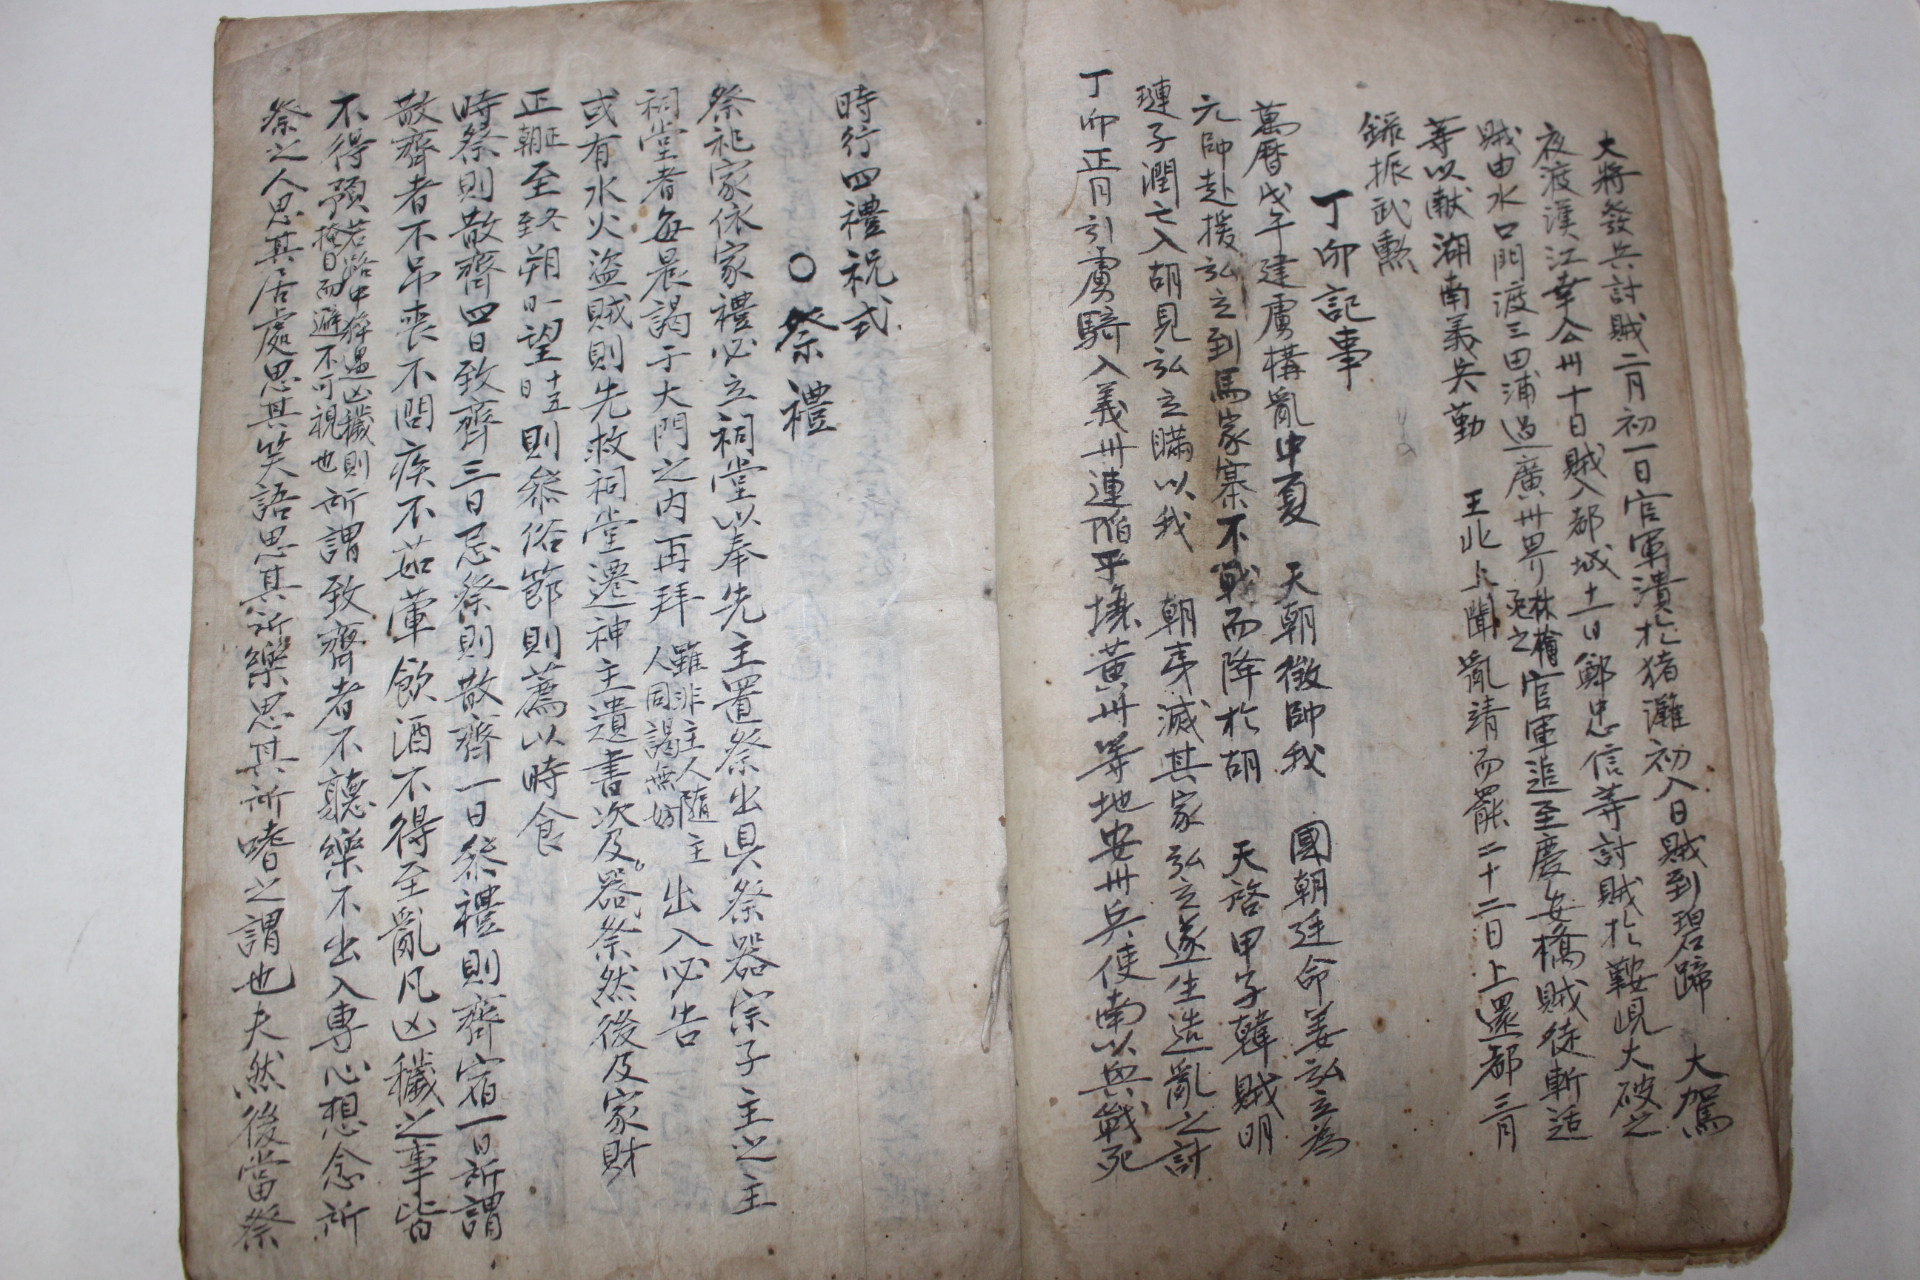 大將發兵討賊二月初一日官軍潰於猪灘初八日賊到碧蹄 大駕
夜渡漢江幸公州十日賊入都城十一日鄭忠信等討賊於鞍峴大破之
賊由水口門渡三田浦過廣州界官軍追至慶安橋賊徒斬适
等以献湖南義兵勤 王北上聞亂靖而罷二十二日上還都三月
錄振武勲
丁卯記事
萬曆戊午建虜構亂中夏 天朝徵帥我 國朝廷命姜弘立為
元帥赴援弘立到馬家寨不戰而降於胡 天啓甲子韓賊明
璉子潤亡入胡見弘立瞞以我 朝夷滅其家弘立遂生造亂之計
丁卯正月引虜騎入義州連陷平壤黃州等地安州兵使南以興戰死
時行四禮祝式
○祭禮
祭祀家依家禮必立祠堂以奉先主置祭田具祭器宗子主之主
祠堂者每晨謁于大門之内再拜 雖非主人隨主人同謁無妨 出入必告
或有水火盜賊則先救祠堂遷神主遺書次及祭器然後及家財
正朝至冬至朔一日望十五日則參俗節則薦以時食
時祭則散齊四日致齊三日忌祭則散齊一日參禮則齊宿一日所謂
散齊者不吊喪不問疾不茹葷飲酒不得至亂凡凶穢之事皆
不得預若路中猝遇凶穢則掩目而避不可視也所謂致齊者不聽樂不出入專心想念所
祭之人思其居處思其笑語思其所樂思其所嗜之謂也夫然後當祭